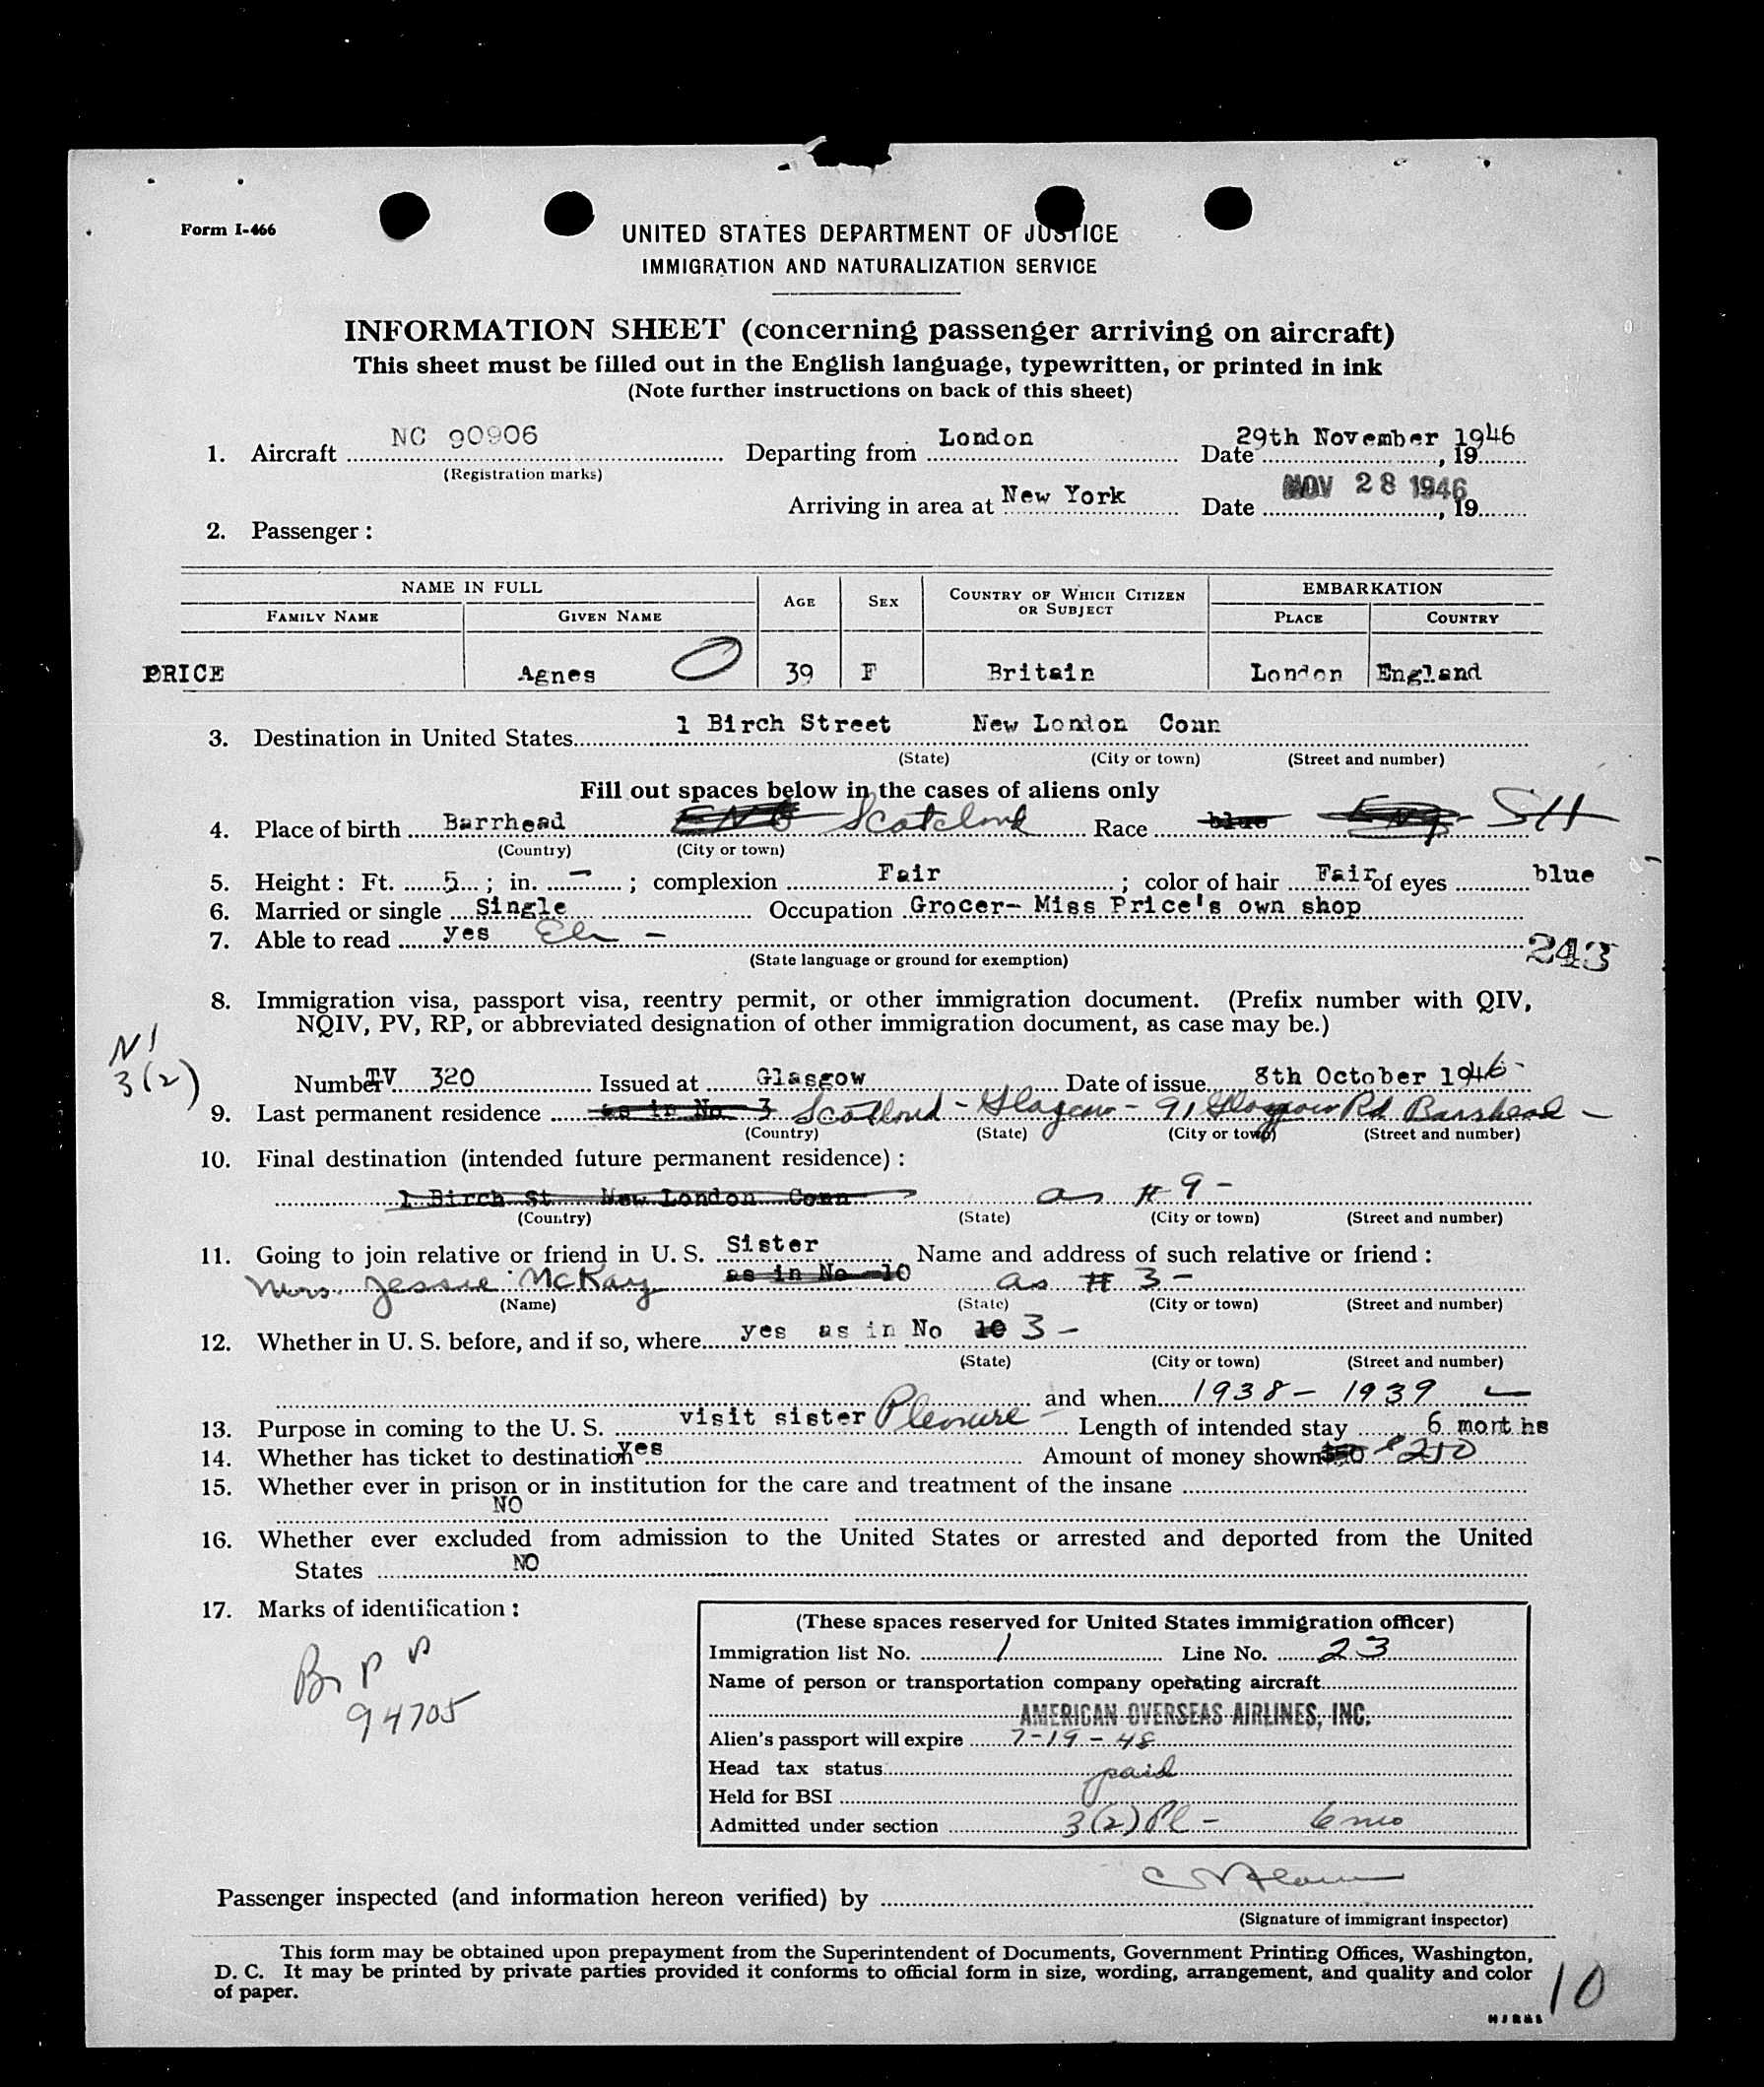 Form I-466
UNITED STATES DEPARTMENT OF JUSTICE
IMMIGRATION AND NATURALIZATION SERVICE
INFORMATION SHEET (concerning passenger arriving on aircraft)
This sheet must be filled out in the English language, typewritten, or printed in ink
(Note further instructions on back of this sheet)
1. Aircraft NC 90906 Departing from London Date 29th November 1946, 19
(Registration marks)
Arriving in area at New York Date NOV 28 1946, 19
2. Passenger:
NAME IN FULL AGE SEX COUNTRY OF WHICH CITIZEN OR SUBJECT EMBARKATION
FAMILY NAME GIVEN NAME PLACE COUNTRY
PRICE Agnes 39 F Britain London England
3. Destination in United States 1 Birch Street New London Conn
(State) (City or town) (Street and number)
Fill out spaces below in the cases of aliens only
4. Place of birth Barrhead ENG Scotland Race blue Eng- SH
(Country) (City or town)
5. Height: Ft. 5 ; in. - ; complexion Fair ; color of hair Fair of eyes blue
6. Married or single Single Occupation Grocer- Miss Price's own shop
7. Able to read yes -
(State language or ground for exemption)
243
8. Immigration visa, passport visa, reentry permit, or other immigration document. (Prefix number with QIV,
NQIV, PV, RP, or abbreviated designation of other immigration document, as case may be.)
N1
3(2)
Number TV 320 Issued at Glasgow Date of issue 8th October 1946-
9. Last permanent residence as in No. 3 Scotland - Glasgow - 91 Glasgow Rd Barrhead -
(Country) (State) (City or town) (Street and number)
10. Final destination (intended future permanent residence):
1 Birch St New London Conn as # 9 -
(Country) (State) (City or town) (Street and number)
11. Going to join relative or friend in U. S. Sister Name and address of such relative or friend:
Mrs. Jessie McKay as in No 10 as # 3 -
(Name) (State) (City or town) (Street and number)
12. Whether in U. S. before, and if so, where yes as in No 10 3 -
(State) (City or town) (Street and number)
and when 1938 - 1939
13. Purpose in coming to the U. S. visit sister Pleasure Length of intended stay 6 months
14. Whether has ticket to destination Yes Amount of money shown $50 $250
15. Whether ever in prison or in institution for the care and treatment of the insane
NO
16. Whether ever excluded from admission to the United States or arrested and deported from the United
States NO
17. Marks of identification:
Br P P
94705
(These spaces reserved for United States immigration officer)
Immigration list No. 1 Line No. 23
Name of person or transportation company operating aircraft
AMERICAN OVERSEAS AIRLINES, INC.
Alien's passport will expire 7-19-48
Head tax status paid
Held for BSI
Admitted under section 3(2) Pl - 6 mo
Passenger inspected (and information hereon verified) by
(Signature of immigrant inspector)
This form may be obtained upon prepayment from the Superintendent of Documents, Government Printing Offices, Washington,
D. C. It may be printed by private parties provided it conforms to official form in size, wording, arrangement, and quality and color
of paper.
10